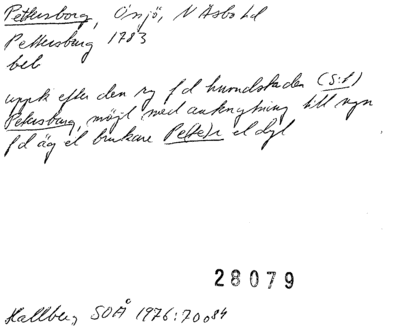 Pettersborg, Össjö, N Åsbo hd
Pettersburg 1783
beb
uppk efter den ry f d huvudstaden (S:t)
Petersburg, möjl med anknytning till ngn
f d äg el brukare Pe(te)r el dyl
28079
Hallberg, SOÅ 1976:70 o 84